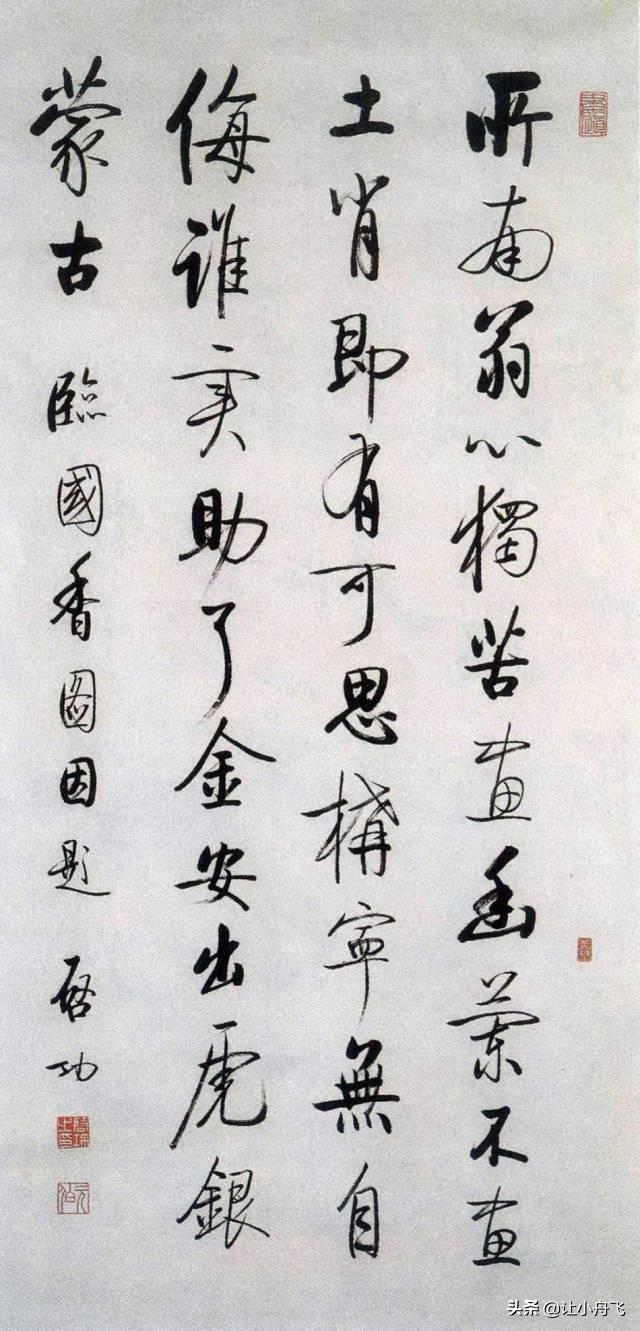 所南翁心獨苦畫幽蘭不畫
土肖即有可思構寧無自
侮誰実助了金安出虎銀
蒙古 臨國香圖因題 啓功
头条 @让小舟飞